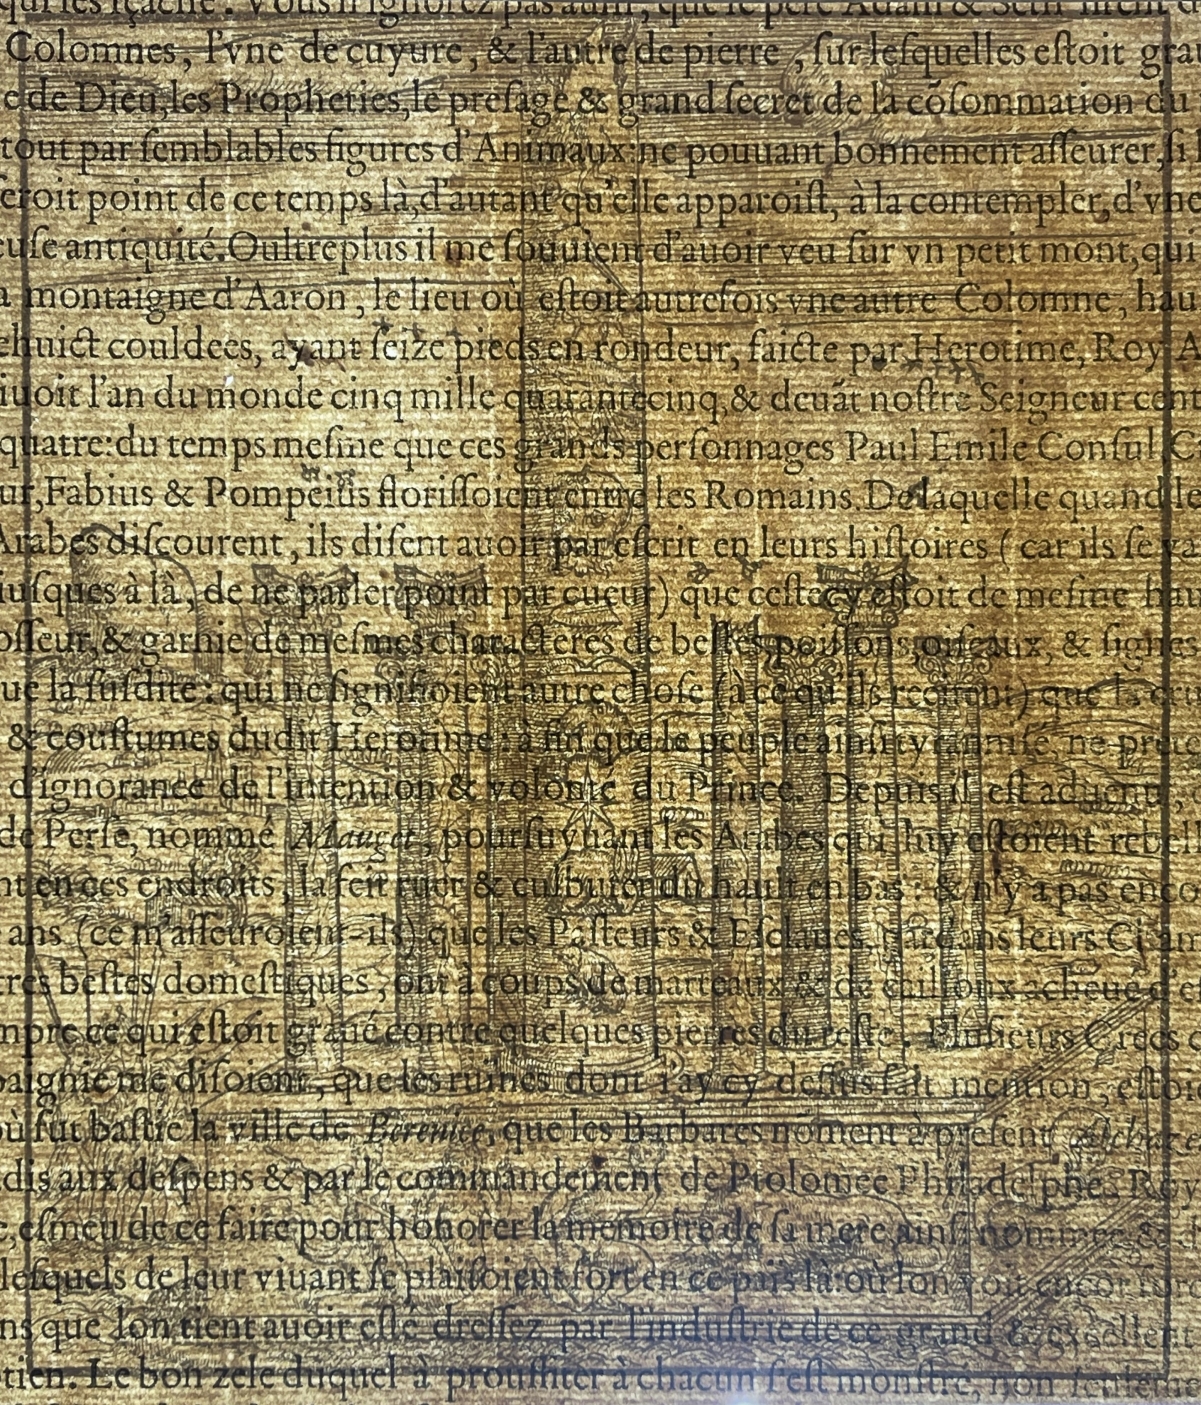 qui les sçache. Vous n'ignorez pas aussi, que le pere Adam & Seth
Colomnes, l'vne de cuyure, & l'autre de pierre, ſur leſquelles eſtoit gra
de Dieu, les Propheties, le preſage & grand ſecret de la cõſommation du
tout par ſemblables figures d'Animaux: ne pouuant bonnement aſſeurer, ſi
eroit point de ce temps là, d'autant qu'elle apparoiſt, à la contempler, d'vne
euſe antiquité. Oultreplus il me ſouuient d'auoir veu ſur vn petit mont, qui
a montaigne d'Aaron, le lieu où eſtoit autrefois vne autre Colomne, hau
ehuict couldees, ayant ſeize pieds en rondeur, faicte par Herotime, Roy A
iuoit l'an du monde cinq mille quarantecinq, & deuãt noſtre Seigneur cent
quatre: du temps meſme que ces grands perſonnages Paul Emile Conſul, C
ur, Fabius & Pompeius floriſſoient entre les Romains. De laquelle quand le
Arabes diſcourent, ils diſent auoir par eſcrit en leurs hiſtoires (car ils ſe va
iuſques à là, de ne parler point par cueur) que ceſtecy eſtoit de meſme hau
oſſeur, & garnie de meſmes characteres de beſtes, poiſſons, oiſeaux, & ſignes
ue la ſuſdite: qui ne ſignifioient autre choſe (à ce qu'ils recitent) que la cru
& couſtumes dudit Herotime: à fin que le peuple ainſi tyranniſé, ne prete
d'ignorance de l'intention & volonté du Prince. Depuis il eſt aduenu,
de Perſe, nommé Mauget, pourſuyuant les Arabes qui luy eſtoient rebell
nt en ces endroits, la feit ruer & culbuter du hault en bas: & n'y a pas enco
ans (ce m'aſſeuroient-ils) que les Paſteurs & Eſclaues, gardans leurs
tres beſtes domeſtiques, ont à coups de marteaux & de cailloux acheué d'e
mpre ce qui eſtoit graué contre quelques pierres du reſte. Pluſieurs Grecs
paignie me diſoient, que les ruines dont i'ay cy deſſus fait mention, eſtoi
où fut baſtie la ville de Berenice, que les Barbares nomment à preſent
dis aux deſpens & par le commandement de Ptolomee Philadelphe, Roy
e, eſmeu de ce faire pour honorer la memoire de ſa mere ainſi nommee &
leſquels de leur viuant ſe plaiſoient fort en ce païs là: où lon voit encor
ns que lon tient auoir eſté dreſſez par l'induſtrie de ce grand & excellent
tien. Le bon zele duquel à prouffiter à chacun ſ'eſt monſtré, non ſeuleme